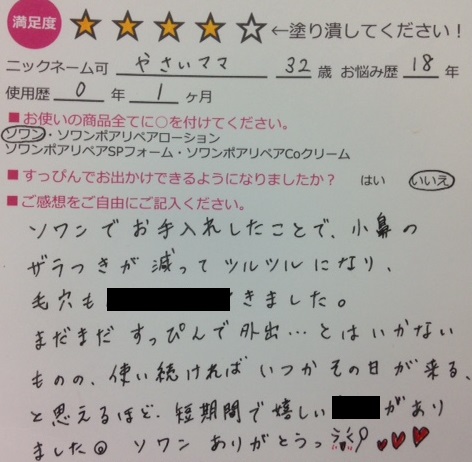 満足度 ★★★★☆ ←塗り潰してください！
ニックネーム可 やさいママ 32歳 お悩み歴 18年
使用歴 0年 1ヶ月
■お使いの商品全てに○を付けてください。
ソワン・ソワンポアリペアローション
ソワンポアリペアSPフォーム・ソワンポアリペアCoクリーム
■すっぴんでお出かけできるようになりましたか？ はい いいえ
■ご感想をご自由にご記入ください。
ソワンでお手入れしたことで、小鼻の
ザラつきが減ってツルツルになり、
毛穴も きました。
まだまだすっぴんで外出…とはいかない
ものの、使い続ければいつかその日が来る、
と思えるほど、短期間で嬉しい があり
ました◎ ソワンありがとうっ